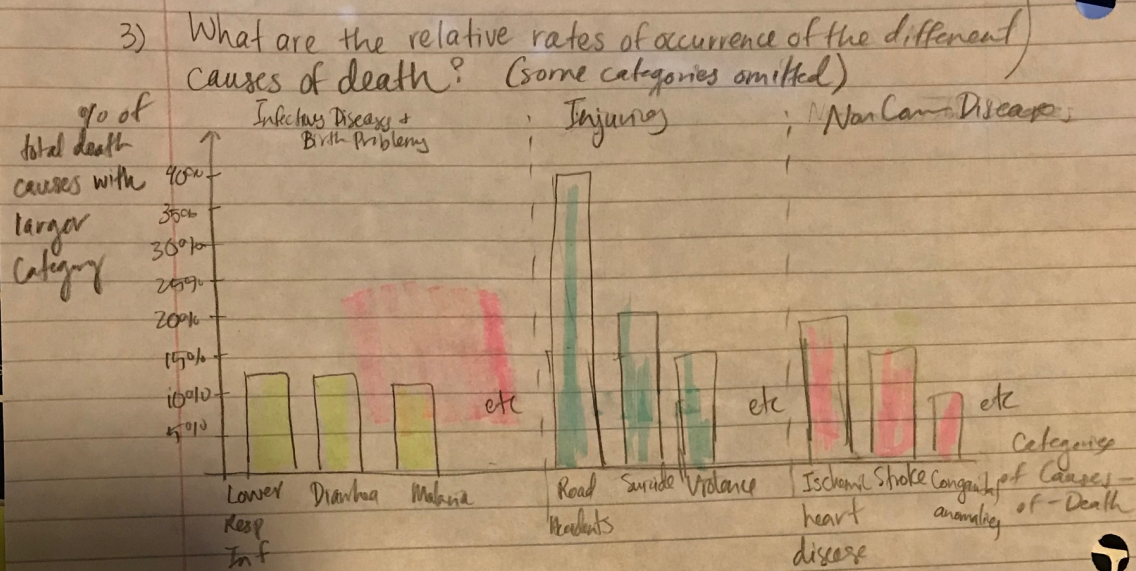 3) What are the relative rates of occurrence of the different
causes of death? (some categories omitted)
% of
total death
causes with
larger
Category
Infectious Diseases +
Birth Problems
Injuries
Non Com Diseases
40%
35%
30%
25%
20%
15%
10%
5%
etc
etc
etc
Lower
Resp
Inf
Diarrhea
Malaria
Road
Accidents
Suicide
Violence
Ischemic
heart
disease
Stroke
Congenital
anomalies
Categories
of Causes-
of-Death